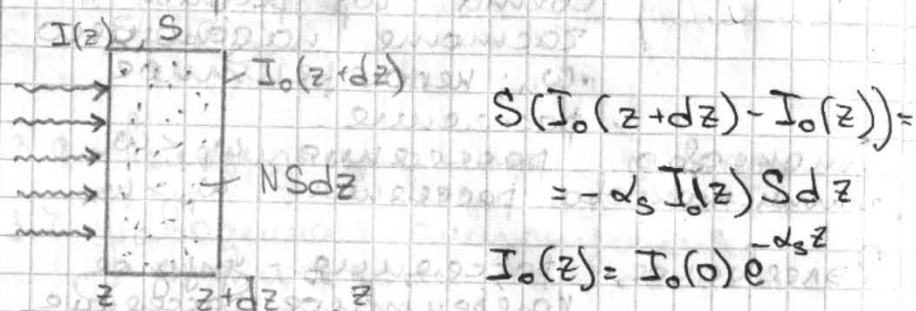 I(z) S
I₀(z+dz)
NSdz
z z+dz z
S(I₀(z+dz)-I₀(z))=
=-αₛI₀(z)Sdz
I₀(z)=I₀(0)e^{-αₛz}